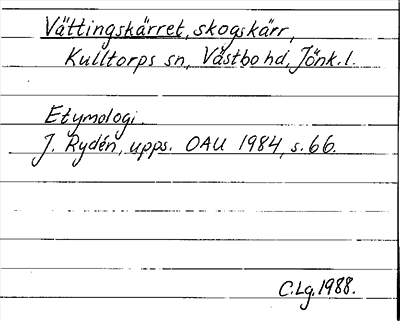 Vättingskärret, skogskärr,
Kulltorps sn, Västbo hd, Jönk. l.
Etymologi.
J. Rydén, upps. OAU 1984, s. 66.
C.Lg. 1988.